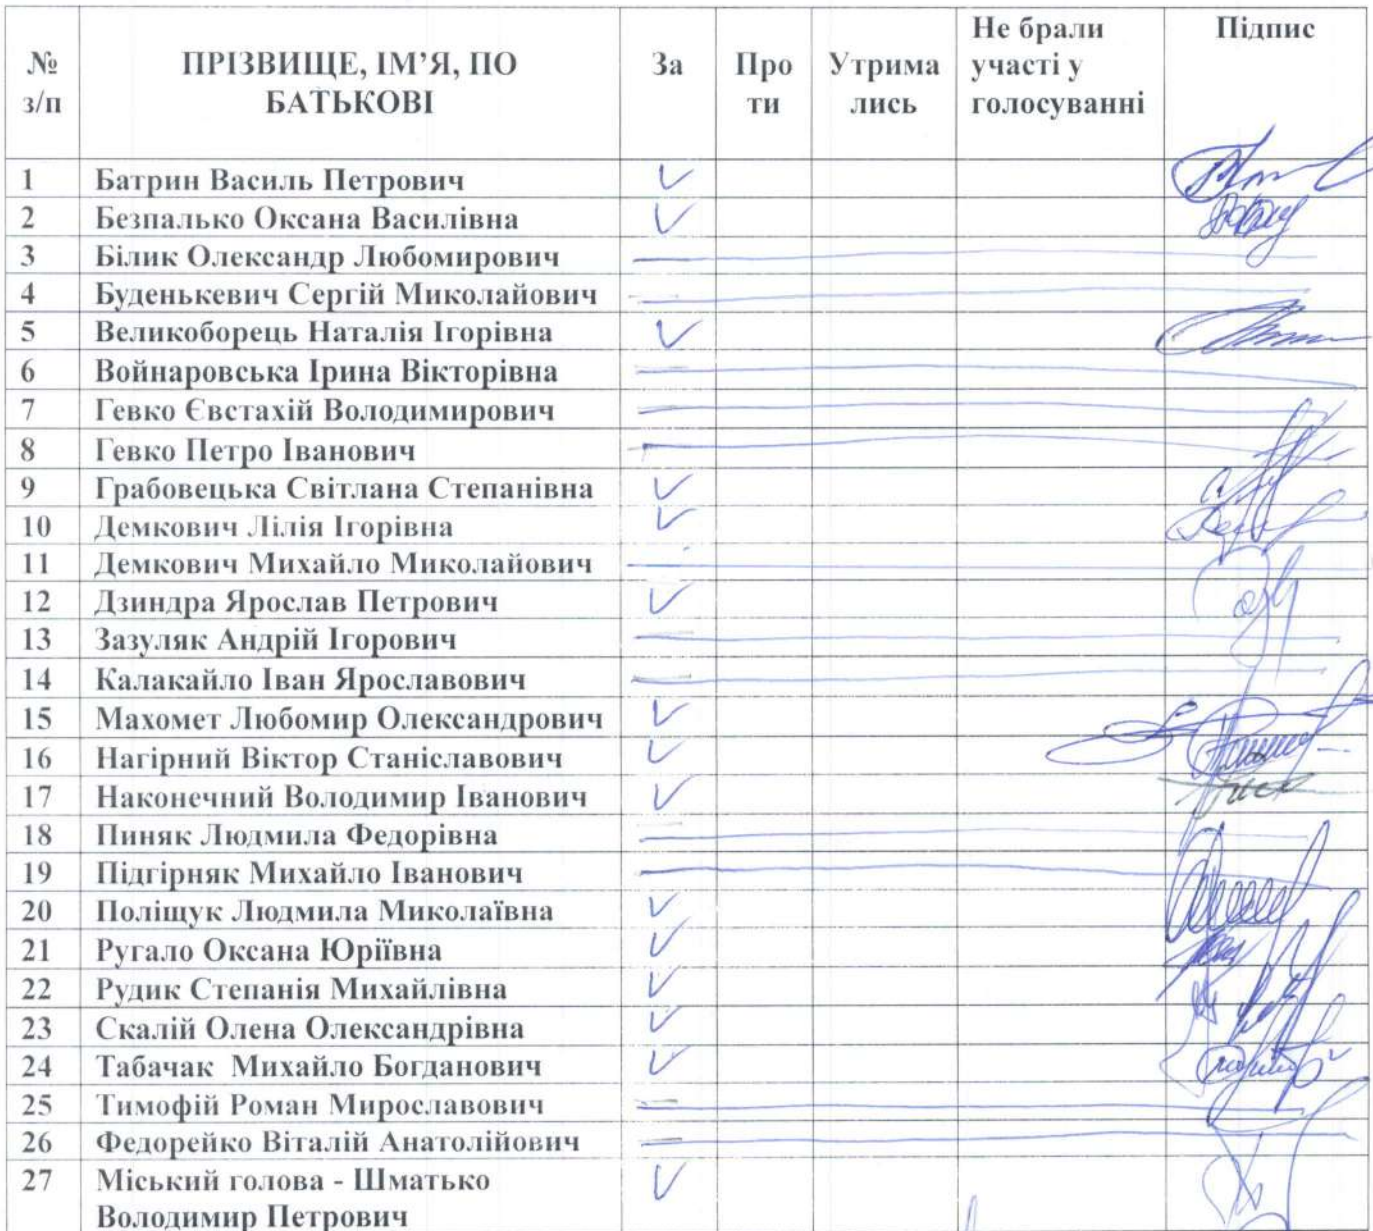 № з/п ПРІЗВИЩЕ, ІМ’Я, ПО БАТЬКОВІ За Про ти Утрима лись Не брали участі у голосуванні Підпис
1 Батрин Василь Петрович ✓
2 Безпалько Оксана Василівна ✓
3 Білик Олександр Любомирович —
4 Буденькевич Сергій Миколайович —
5 Великоборець Наталія Ігорівна ✓
6 Войнаровська Ірина Вікторівна —
7 Гевко Євстахій Володимирович —
8 Гевко Петро Іванович —
9 Грабовецька Світлана Степанівна ✓
10 Демкович Лілія Ігорівна ✓
11 Демкович Михайло Миколайович —
12 Дзиндра Ярослав Петрович ✓
13 Зазуляк Андрій Ігорович —
14 Калакайло Іван Ярославович —
15 Махомет Любомир Олександрович ✓
16 Нагірний Віктор Станіславович ✓
17 Наконечний Володимир Іванович ✓
18 Пиняк Людмила Федорівна —
19 Підгірняк Михайло Іванович —
20 Поліщук Людмила Миколаївна ✓
21 Ругало Оксана Юріївна ✓
22 Рудик Степанія Михайлівна ✓
23 Скалій Олена Олександрівна ✓
24 Табачак Михайло Богданович ✓
25 Тимофій Роман Мирославович —
26 Федорейко Віталій Анатолійович —
27 Міський голова - Шматько ✓
Володимир Петрович